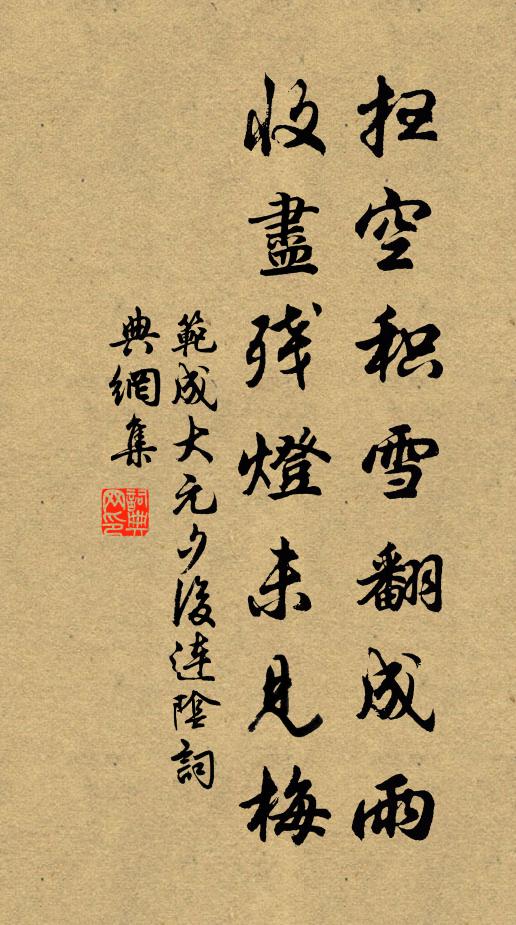 扫空积雪翻成雨
收盡残燈未見梅
範成大元夕後連陰詞
典網集
詞典網印